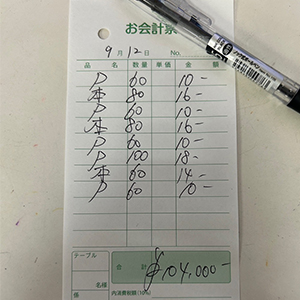 お会計票
9月12日 No.
品名 数量 単価 金額
P 60 10-
本 80 16-
P 60 10-
本 80 16-
P 60 10-
P 100 18-
本 60 14-
P 60 10-
テーブル 合計 ¥104,000-
名様
係 内消費税額(10%)